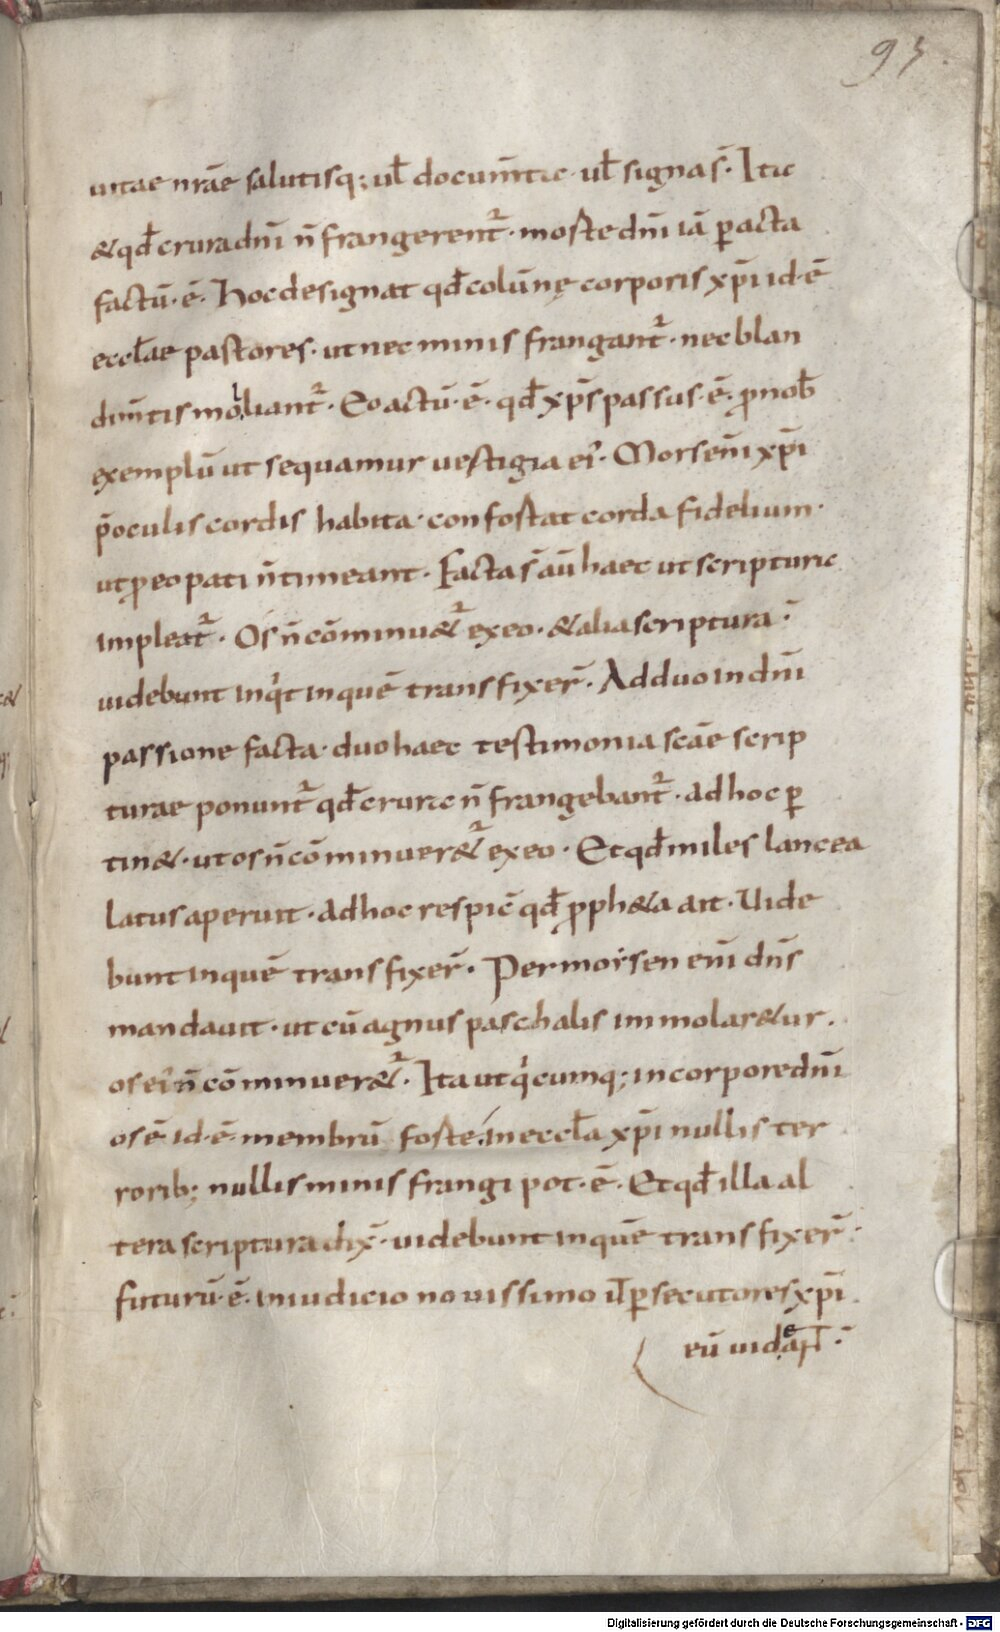 95.
uitae nr̄ae salutisq; ul̄ docum̄ta· ul̄ signa s̄· Ita
& qd̄ crura dn̄i n̄ frangerent᷑· mo ste dn̄i iā ꝑacta
factū· ē· Hoc designat qd̄ colūnę corporis xp̄i id· ē
eccl̄ae pastores· ut nec minis frangant᷑· nec blan
dim̄tis molliant᷑· Eo actū· ē· qd̄ xp̄s passus· ē· ꝓ nob̄
exemplū ut sequamur uestigia ei᷒· Mors en̄i xp̄i
p̄ oculis cordis habita· confo stat corda fidelium·
ut ꝓ eo pati n̄ timeant· Facta s̄ aū haec ut scriptura
impleat᷑· Os n̄ cōminu&᷑ ex eo· & alia scriptura·
uidebunt inqͥt in quē transfixer̄· Ad duo in dn̄i
passione facta· duo haec testimonia scāe scrip
turae ponunt᷑ qd̄ crura n̄ frangebant᷑· ad hoc ꝑ
tin&· ut os n̄ cōminuer&᷑ ex eo· Et qd̄ miles lancea
latus aperuit· ad hoc respic̄ qd̄ ꝓph&a ait· Uide
bunt in quē transfixer̄· Per morsen en̄i dn̄s
mandauit· ut cū agnus paschalis immolar&ur·
os ei᷒ n̄ cōminuer&᷑· Ita ut qͥcumq; in corpore dn̄i
os ē id· ē· membrū fo ste· in eccl̄a xp̄i nullis ter
rorib; nullis minis frangi pot· ē· Et qd̄ illa al
tera scriptura dix̄· uidebunt in quē transfixer̄·
futurū· ē· in iudicio nouissimo ut ꝑsecutores xp̄i
eū uideant·
Digitalisierung gefördert durch die Deutsche Forschungsgemeinschaft - DFG